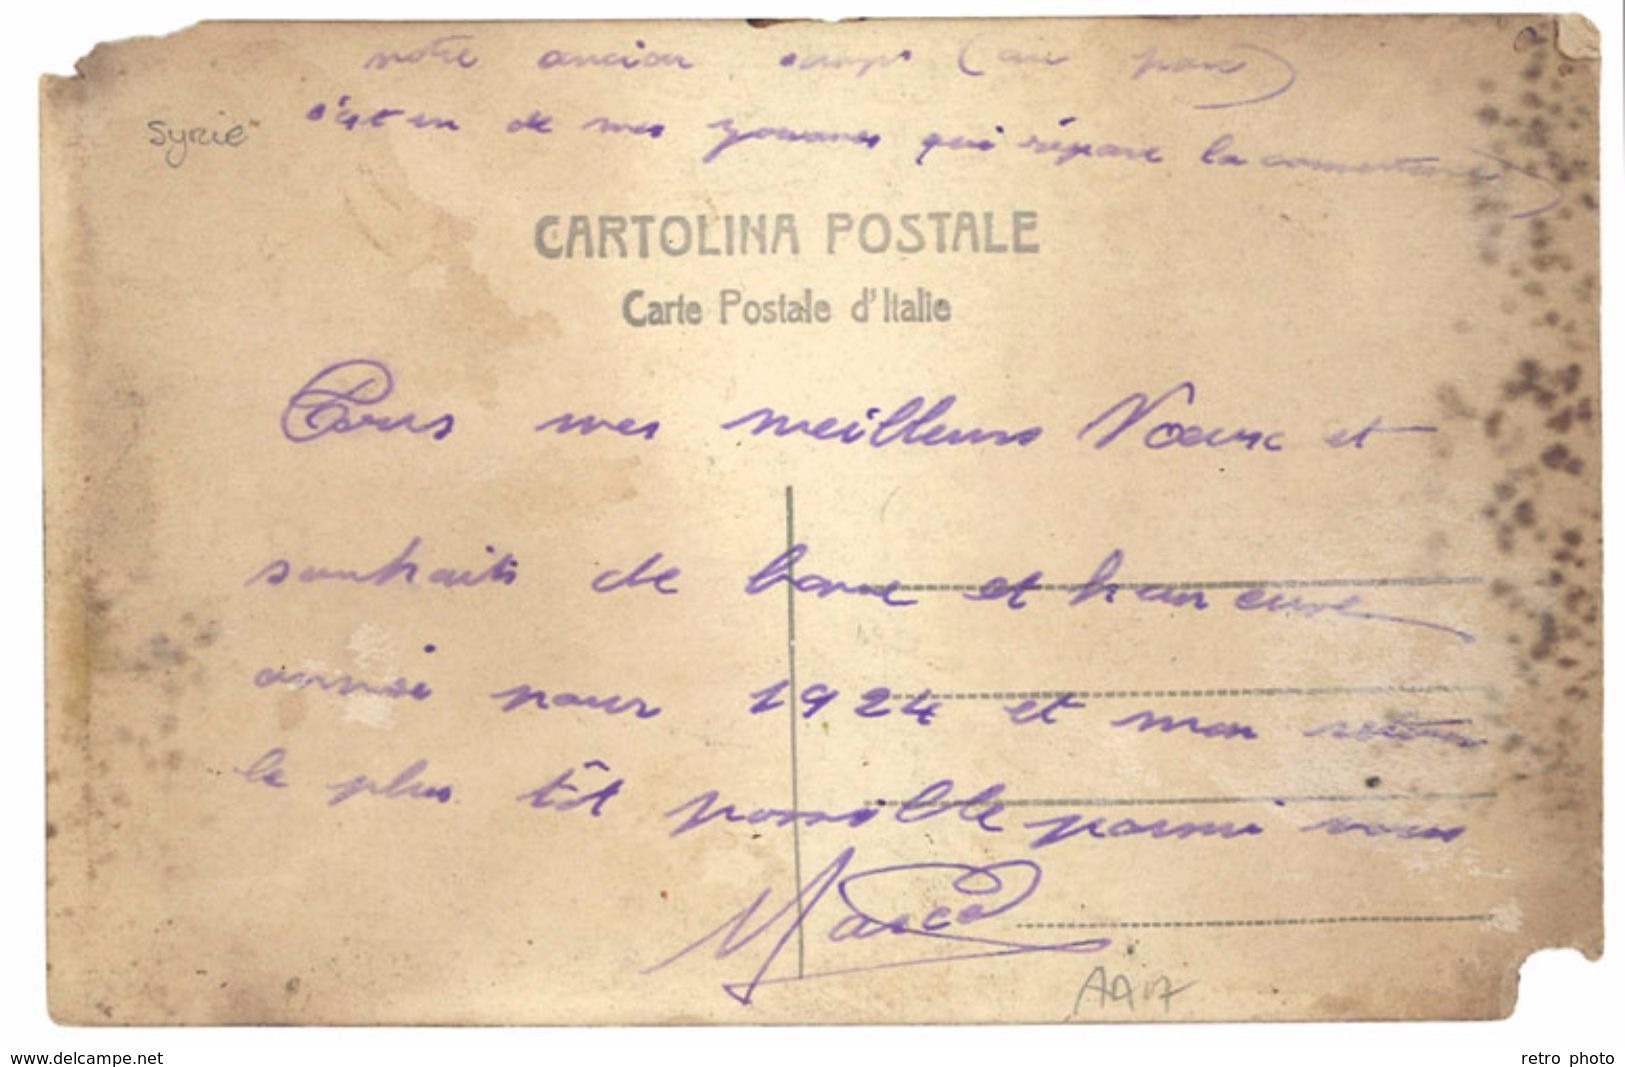 notre ancien camp (au parc)
Syrie
c'est un de mes qui répare la
CARTOLINA POSTALE
Carte Postale d'Italie
Tous mes meilleurs Voeux et
souhaits de bonne et heureuse
année pour 1924 et mon retour
le plus tôt possible parmi vous
Marcel
AA17
www.delcampe.net
retro photo